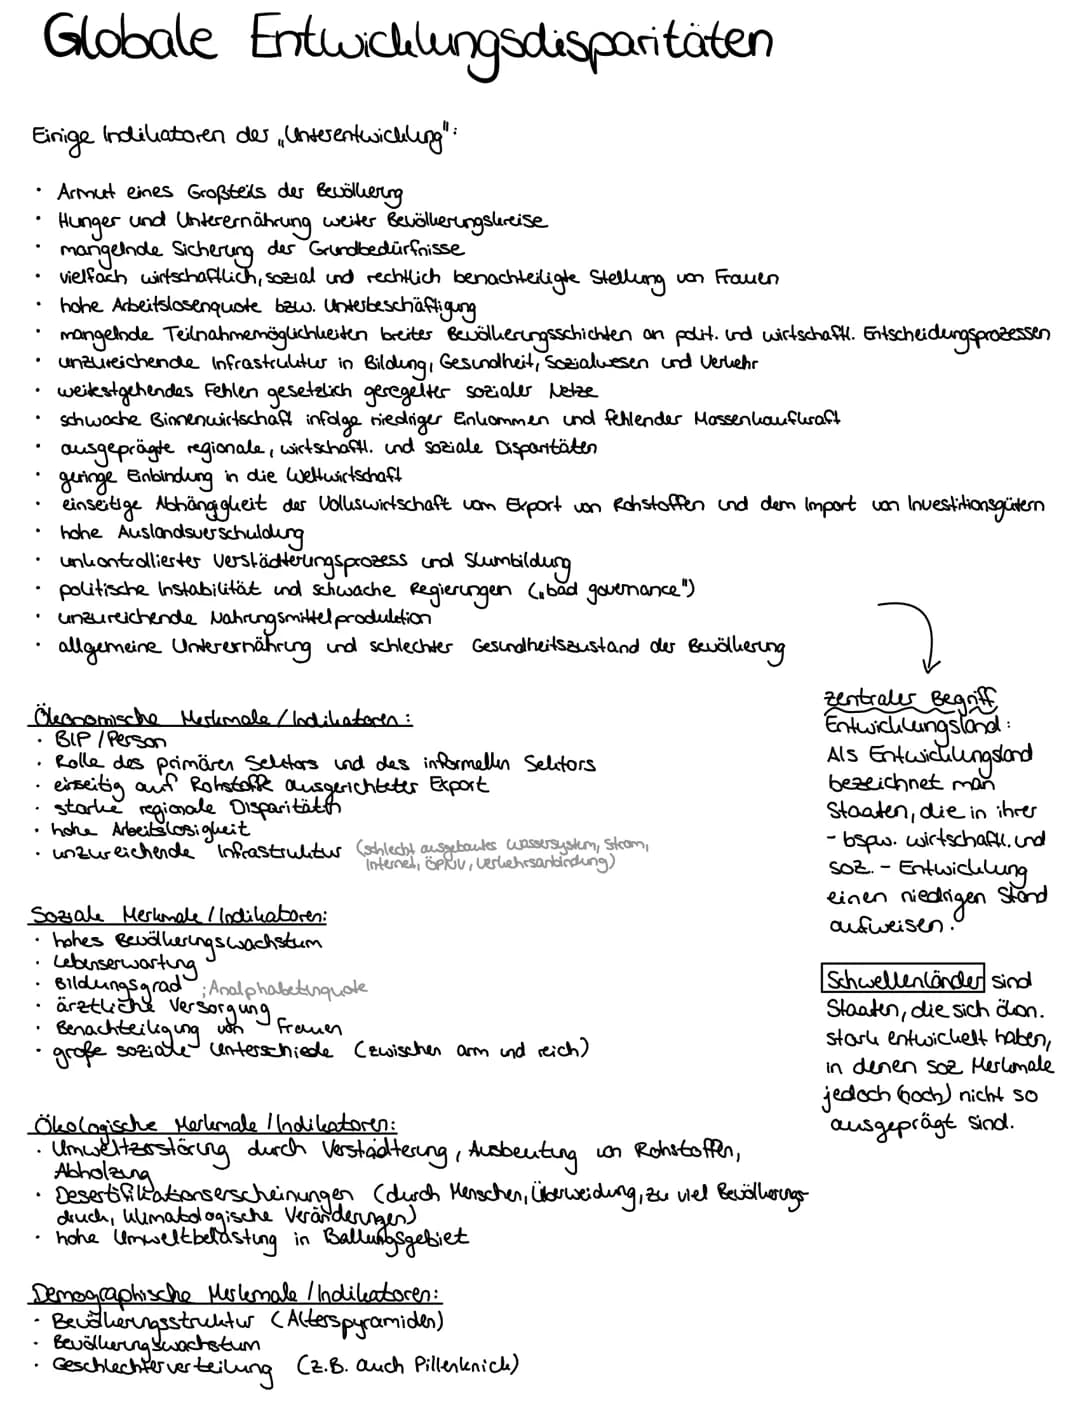 Globale Entwicklungsdisparitäten
Einige Indikatoren der „Unterentwicklung":
• Armut eines Großteils der Bevölkerung
• Hunger und Unterernährung weiter Bevölkerungskreise
• mangelnde Sicherung der Grundbedürfnisse
• vielfach wirtschaftlich, sozial und rechtlich benachteiligte Stellung von Frauen
• hohe Arbeitslosenquote bzw. Unterbeschäftigung
• mangelnde Teilnahmemöglichkeiten breiter Bevölkerungsschichten an polit. und wirtschaftl. Entscheidungsprozessen
• unzureichende Infrastruktur in Bildung, Gesundheit, Sozialwesen und Verkehr
• weitestgehendes Fehlen gesetzlich geregelter sozialer Netze
• schwache Binnenwirtschaft infolge niedriger Einkommen und fehlender Massenkaufkraft
• ausgeprägte regionale, wirtschaftl. und soziale Disparitäten
• geringe Einbindung in die Weltwirtschaft
• einseitige Abhängigkeit der Volkswirtschaft vom Export von Rohstoffen und dem Import von Investitionsgütern
• hohe Auslandsverschuldung
• unkontrollierter Verstädterungsprozess und Slumbildung
• politische Instabilität und schwache Regierungen („bad governance")
• unzureichende Nahrungsmittelproduktion
• allgemeine Unterernährung und schlechter Gesundheitszustand der Bevölkerung
Ökonomische Merkmale / Indikatoren:
• BIP / Person
• Rolle des primären Sektors und des informellen Sektors
• einseitig auf Rohstoffe ausgerichteter Export
• starke regionale Disparitäten
• hohe Arbeitslosigkeit
• unzureichende Infrastruktur (schlecht ausgebautes Wassersystem, Strom,
Internet, ÖPNV, Verkehrsanbindung)
Soziale Merkmale / Indikatoren:
• hohes Bevölkerungswachstum
• Lebenserwartung
• Bildungsgrad ; Analphabetenquote
• ärztliche Versorgung
• Benachteiligung von Frauen
• große soziale Unterschiede (zwischen arm und reich)
Ökologische Merkmale / Indikatoren:
• Umweltzerstörung durch Verstädterung, Ausbeutung von Rohstoffen,
Abholzung
• Desertifikationserscheinungen (durch Menschen, Überweidung, zu viel Bevölkerungs-
druck, klimatologische Veränderungen)
• hohe Umweltbelastung in Ballungsgebiet
Demographische Merkmale / Indikatoren:
• Bevölkerungsstruktur (Alterspyramiden)
• Bevölkerungswachstum
• Geschlechterverteilung (z.B. auch Pillenknick)
zentraler Begriff
Entwicklungsland:
Als Entwicklungsland
bezeichnet man
Staaten, die in ihrer
- bspw. wirtschaftl. und
soz. - Entwicklung
einen niedrigen Stand
aufweisen.
Schwellenländer sind
Staaten, die sich ökon.
stark entwickelt haben,
in denen soz Merkmale
jedoch (noch) nicht so
ausgeprägt sind.